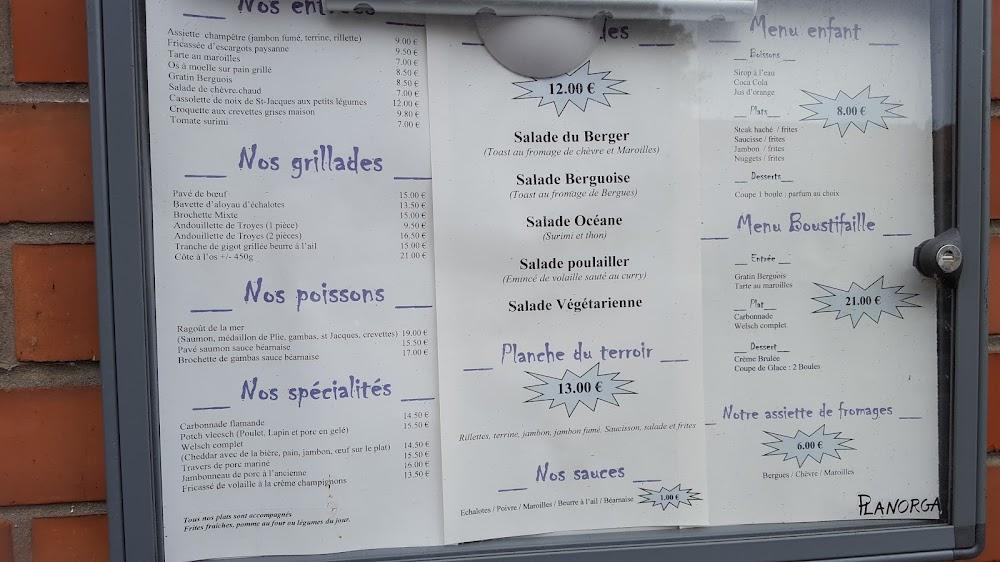 Nos entrées
Assiette champêtre (jambon fumé, terrine, rillette) 9.00 €
Fricassée d'escargots paysanne 9.50 €
Tarte au maroilles 7.00 €
Os à moelle sur pain grillé 8.50 €
Gratin Berguois 8.50 €
Salade de chèvre chaud 7.00 €
Cassolette de noix de St-Jacques aux petits légumes 12.00 €
Croquette aux crevettes grises maison 9.80 €
Tomate surimi 7.00 €
Nos grillades
Pavé de bœuf 15.00 €
Bavette d'aloyau d'échalotes 13.50 €
Brochette Mixte 15.00 €
Andouillette de Troyes (1 pièce) 9.50 €
Andouillette de Troyes (2 pièces) 16.50 €
Tranche de gigot grillée beurre à l'ail 15.00 €
Côte à l'os +/- 450g 21.00 €
Nos poissons
Ragoût de la mer
(Saumon, médaillon de Plie, gambas, st Jacques, crevettes) 19.00 €
Pavé saumon sauce béarnaise 15.50 €
Brochette de gambas sauce béarnaise 17.00 €
Nos spécialités
Carbonnade flamande 14.50 €
Potch vleesch (Poulet, Lapin et porc en gelé) 15.50 €
Welsch complet 14.50 €
(Cheddar avec de la bière, pain, jambon, œuf sur le plat) 15.50 €
Travers de porc mariné 16.00 €
Jambonneau de porc à l'ancienne 13.50 €
Fricassé de volaille à la crème champignons
Tous nos plats sont accompagnés
Frites fraîches, pomme au four ou légumes du jour.
des
12.00 €
Salade du Berger
(Toast au fromage de chèvre et Maroilles)
Salade Berguoise
(Toast au fromage de Bergues)
Salade Océane
(Surimi et thon)
Salade poulailler
(Emincé de volaille sauté au curry)
Salade Végétarienne
Planche du terroir
13.00 €
Rillettes, terrine, jambon, jambon fumé, Saucisson, salade et frites
Nos sauces
Echalotes / Poivre / Maroilles / Beurre à l'ail / Béarnaise 1.00 €
Menu enfant
Boissons
Sirop à l'eau
Coca Cola
Jus d'orange
8.00 €
Plats
Steak haché / frites
Saucisse / frites
Jambon / frites
Nuggets / frites
Desserts
Coupe 1 boule : parfum au choix
Menu Boustifaille
Entrée
Gratin Berguois
Tarte au maroilles
21.00 €
Plat
Carbonnade
Welsch complet
Dessert
Crème Brulée
Coupe de Glace : 2 Boules
Notre assiette de fromages
6.00 €
Bergues / Chèvre / Maroilles
PLANORGA